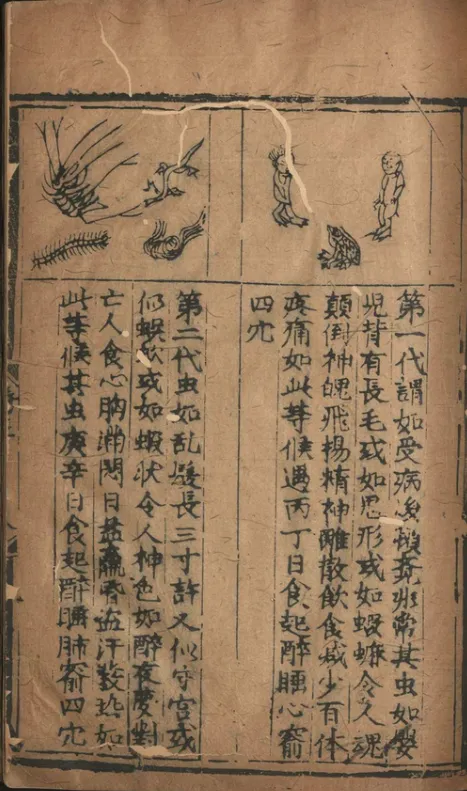 第一代謂如受病後 非常其虫如嬰
児背有長毛或如鬼形或如蝦蟆令人魂
顛倒神魄飛揚精神離散飲食减少百体
疼痛如此等候遇丙丁日食起醉睡心俞
四穴
第二代虫如乱髮長三寸許又似守宮或
似蜈蚣或如蝦狀令人神色如醉夜夢對
亡人食心胸满悶日 盗汗發热如
此等候其虫庚辛日食起醉睡肺俞四穴